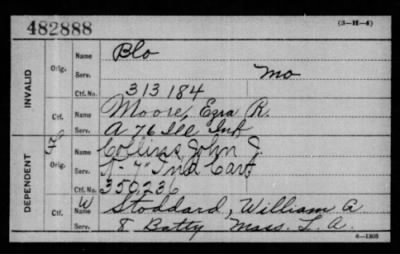 482888
(3-H-4)
INVALID
Orig.
Name Blo
Serv. Mo
Ctf. No. 313184
Ctf.
Name Moore, Ezra R.
Serv. A 76 Ill Inf
DEPENDENT
Orig.
Name Collins, John J.
Serv. 7" Ind Cav
Ctf. No. 350,236
W
Ctf.
Name Stoddard, William A
Serv. 8 Batty Mass. L. A.
6-1305